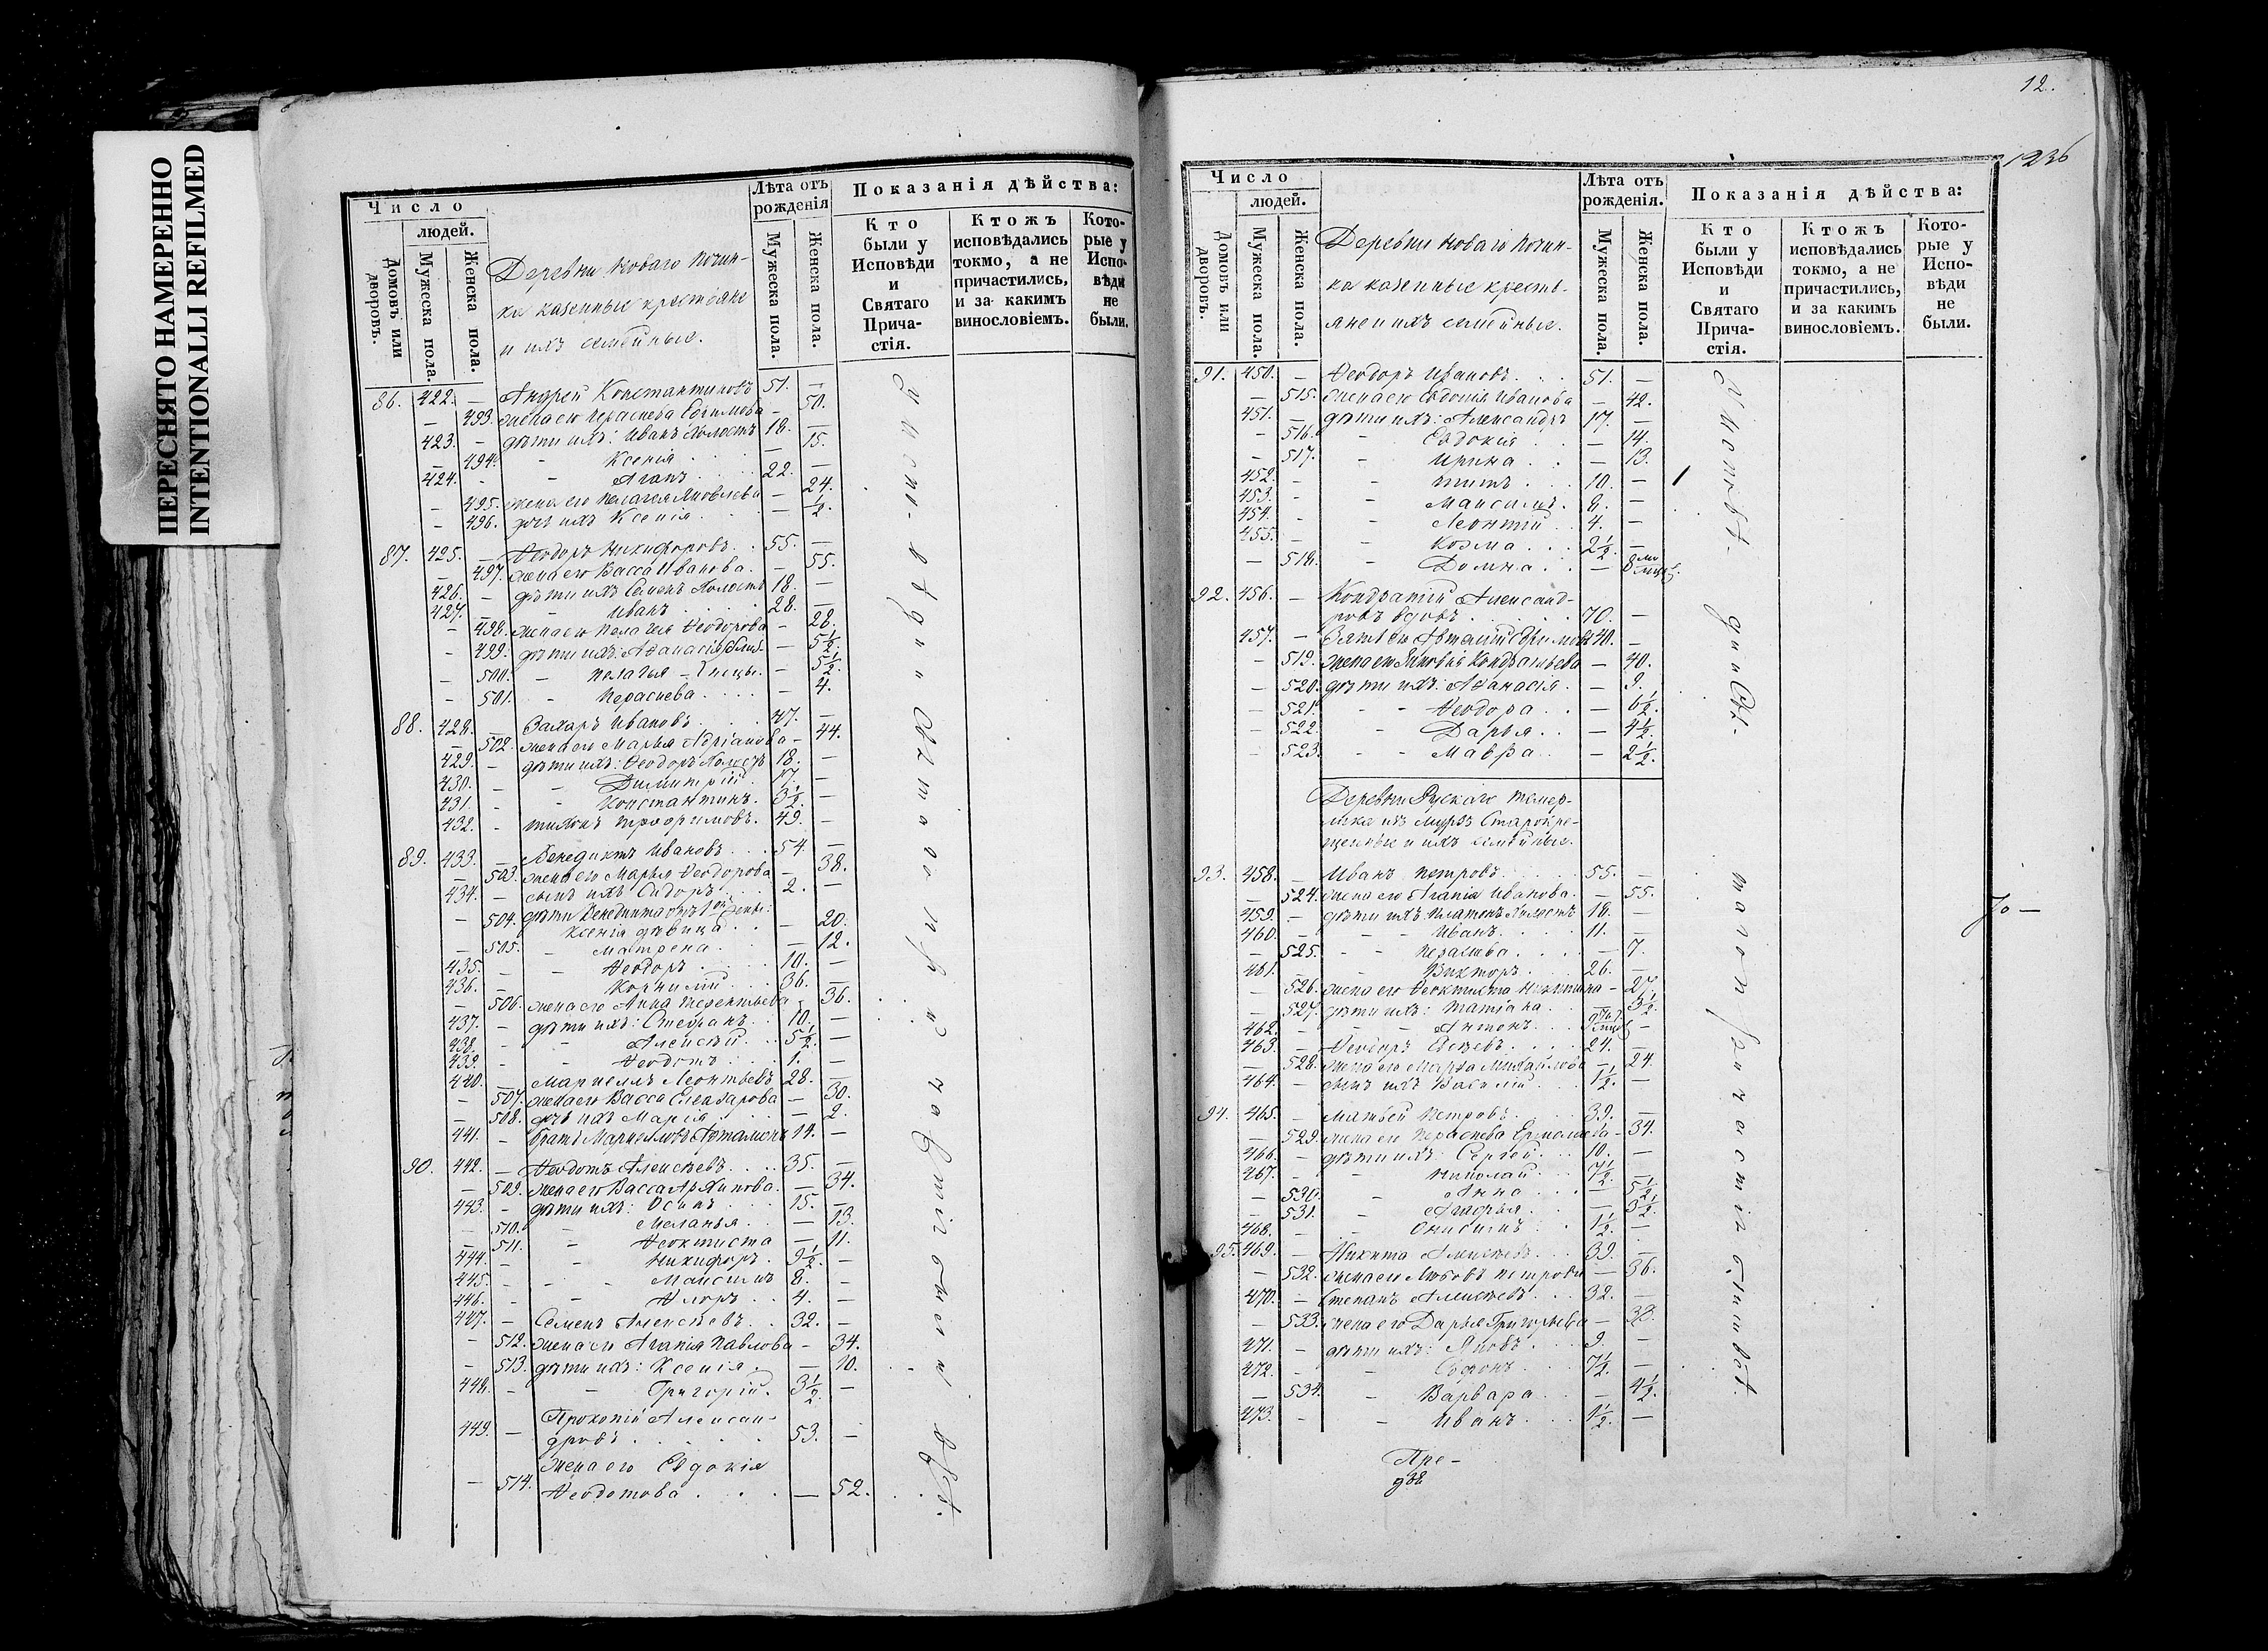 ПЕРЕСНЯТО НАМЕРЕННО
INTENTIONALLI REFILMED
Число
людей.
Домовъ или дворовъ.
Мужеска пола.
Женска пола.
Деревни Новаго Почин-
ка казенные крестьяне
и ихъ семейные.
Лѣта отъ рожденія
Мужеска пола.
Женска пола.
Показанія дѣйства:
Кто были у Исповѣди и Святаго Прича-стія.
Ктожъ исповѣдались токмо, а не причастились, и за какимъ винословіемъ.
Кото-рые у Испо-вѣди не были.
86. 422. — Андрей Константиновъ 51. —
— 493. жена его Параскева Ефимова — 50.
423. — дѣти ихъ: Иванъ холостъ 18. —
— 494. - Ксенія — 15.
424. - - Агапъ 22. —
— 495. жена его Пелагея Яковлева — 24.
— 496. дочь ихъ Ксенія — ½.
87. 425. — Ѳеодоръ Никифоровъ 55. —
— 497. жена его Васса Иванова — 55.
426. — дѣти ихъ Семенъ холостъ 18. —
427. — - Иванъ 28. —
— 498. жена его Пелагея Ѳеодорова — 28.
— 499. дѣти ихъ: Аѳанасія — 5½.
— 500. - Пелагея — 5½.
— 501. - Параскева — 4.
88. 428. — Захаръ Ивановъ 47. —
— 502. жена его Марья Адріанова — 44.
429. — дѣти ихъ: Ѳеодоръ холостъ 18. —
430. — - Димитрій 7. —
431. — - Константинъ 3½. —
432. - Тихонъ Трофимовъ 49. —
89. 433. — Венедиктъ Ивановъ 54 —
— 503. жена его Марья Ѳеодорова — 38.
434. — сынъ ихъ Сидоръ 2. —
— 504. дѣти Венедикта отъ 1ой жены:
Ксенія дѣвица — 20.
— 505. - Матрена — 12.
435. — - Ѳеодоръ 10. —
436. — - Корнилій 36. —
— 506. жена его Анна Терентьева — 36.
437. — дѣти ихъ: Стефанъ 10. —
438. - - Алексѣй 5½. —
439. - - Ѳеодотъ 1. —
440. — Маркеллъ Леонтьевъ 28. —
— 507. жена его Васса Елеазарова — 30.
— 508. дочь ихъ Марія — 2.
441. — братъ Маркелловъ Артамонъ 14. —
90. 442. — Ѳеодотъ Алексѣевъ 35. —
— 509. жена его Васса Архипова — 34.
443. — дѣти ихъ: Осипъ 15. —
— 510. - Меланья — 13.
— 511. - Ѳеоктиста — 11.
444. — - Никифоръ 9½. —
445. — - Максимъ 8. —
446. — - Флоръ 4. —
447. — Семенъ Алексѣевъ 32. —
— 512. жена его Агапія Павлова — 34.
— 513. дѣти ихъ: Ксенія — 10.
448. — - Григорій 3½. —
449. — Прокопій Алексан-
дровъ 53. —
жена его Евдокія
— 514. Ѳеодотова — 52.
У Исповѣди и Св. таинъ причастія
12.
1236
Число
людей.
Домовъ или дворовъ.
Мужеска пола.
Женска пола.
Деревни Новаго Почин-
ка казенные кресть-
яне и ихъ семейные.
Лѣта отъ рожденія.
Мужеска пола.
Женска пола.
Показанія дѣйства:
Кто были у Исповѣди и Святаго Прича-стія.
Ктожъ исповѣдались токмо, а не причастились, и за какимъ винословіемъ.
Кото-рые у Испо-вѣди не были.
91. 450. — Ѳеодоръ Ивановъ 51. —
— 515. жена его Евдокія Иванова — 42.
451. — дѣти ихъ: Александръ 17. —
— 516. - Евдокія — 14.
— 517. - Ирина — 13.
452. - - Титъ 10. —
453. - - Максимъ 8. —
454. - - Леонтій 4. —
455. - - Козма 2½. —
— 518. - Домна — 8 мѣ.
92. 456. — Кондратій Александ-
ровъ вдовъ 70. —
457. — Зять его Артамонъ Ефимовъ 40. —
— 519. жена его Зиновія Кондратьева — 40.
— 520. дѣти ихъ: Аѳанасія — 9.
— 521. - Ѳеодора — 6½.
— 522. - Дарья — 4½.
— 523. - Мавра — 2½.
Деревни Рускаго Темер-
лика изъ Старокре-
щенные и ихъ семейные.
93. 458. — Иванъ Петровъ 55. —
— 524. жена его Агапія Иванова — 55.
459. — дѣти ихъ Платонъ холостъ 18. —
460. — - Иванъ 11. —
— 525. - Параскева — 7.
461. — - Викторъ 26. —
— 526. жена его Ѳеоктиста Никитина — 27.
— 527. дѣти ихъ: Татіана — 3½.
462. — - Антонъ —
463. — Ѳеодоръ 24. —
— 528. жена его Марѳа Михайлова — 24.
464. — сынъ ихъ Василій 1½. —
94. 465. — Матвей Петровъ 39. —
— 529. жена его Параскева Ермолаева — 34.
466. — дѣти ихъ: Сергей 10. —
467. — - Николай 7½. —
— 530. - Анна — 5½.
— 531. - Агафья — 3½.
468. — - Онисимъ 1½. —
95. 469. — Никита Алексѣевъ 39. —
— 532. жена его Любовь Петрова — 36.
470. — Степанъ Алексѣевъ 32. —
— 533. жена его Дарья Григорьева — 38.
471. — дѣти ихъ: Яковъ 9. —
472. — - Софонъ 7½. —
— 534. - Варвара — 4½.
473. — - Иванъ 1½. —
У Исповѣди и Св. таинъ причастія были всѣ.
Пре-